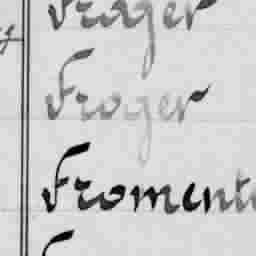 Frager
Froger
Froment